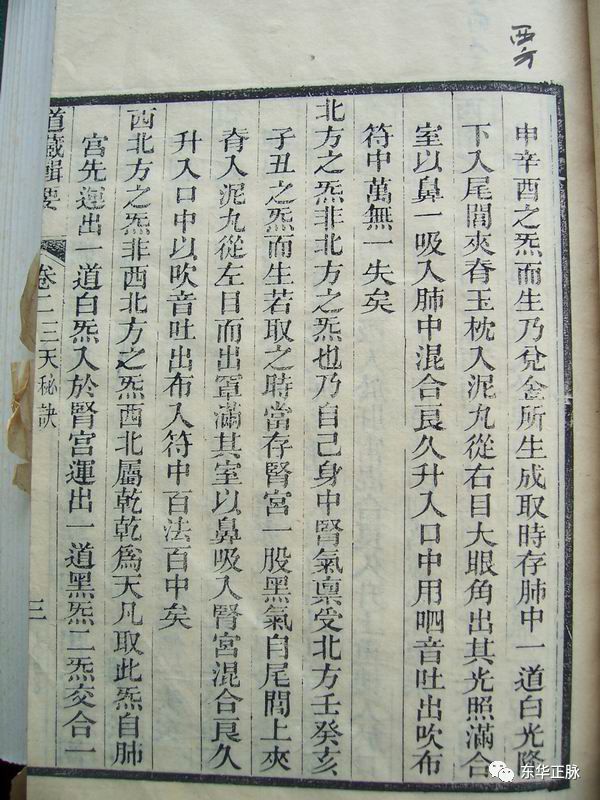 申辛酉之炁而生乃兌金所生成取時存肺中一道白光降
下入尾閭夾脊玉枕入泥丸從右目大眼角出其光照滿合
室以鼻一吸入肺中混合良久升入口中用呬音吐出吹布
符中萬無一失矣
北方之炁非北方之炁也乃自己身中腎氣稟受北方壬癸亥
子丑之炁而生若取之時當存腎宮一股黑氣自尾閭上夾
脊入泥丸從左目而出罩滿其室以鼻吸入腎宮混合良久
升入口中以吹音吐出布入符中百法百中矣
西北方之炁非西北方之炁西北屬乾乾爲天凡取此炁自肺
宮先運出一道白炁入於腎宮運出一道黑炁二炁交合一
道藏輯要 卷二三天秘訣 三
东华正脉